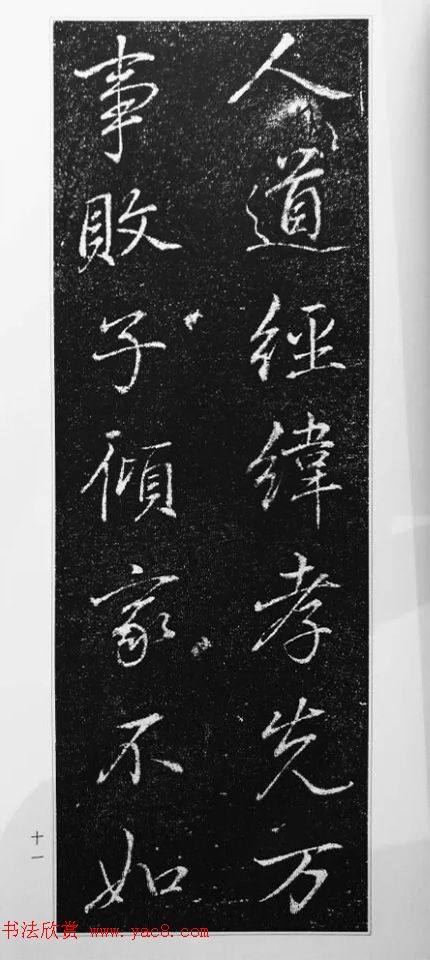 人道經緯孝先万
事敗子傾家不如
十一
书法欣赏 www.yac8.com